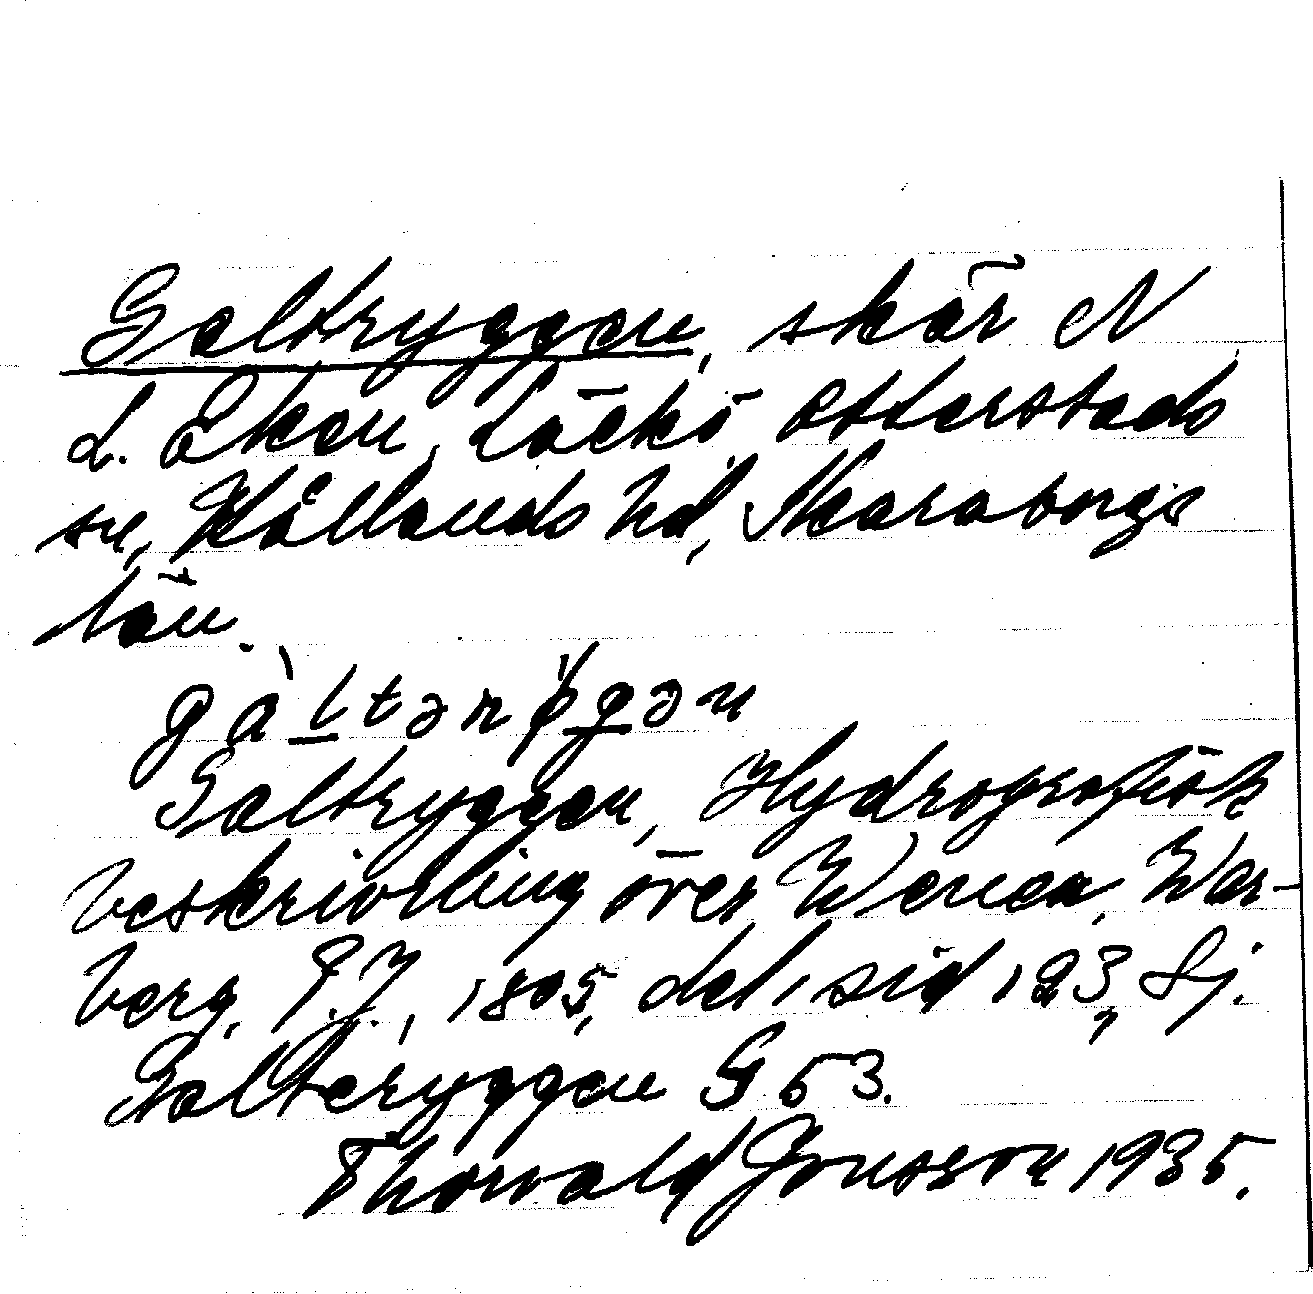 Galtryggen, skär N
L. Eken, Läckö, Otterstads
sn, Kållands hd, Skaraborgs
län.
gàltənrøgən
Galtryggen, Hydrografisk
beskrivning över Wenern, War-
berg, P.J., 1805, del 1 sid 123, Sj.
Galteryggen G 53.
Thorvald Jonsson 1935.